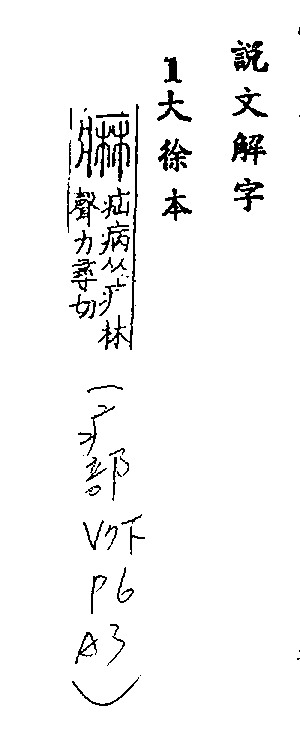 說文解字
1大徐本
痳
疝病从疒林
聲力尋切
(疒部
V7下
P6
A3)